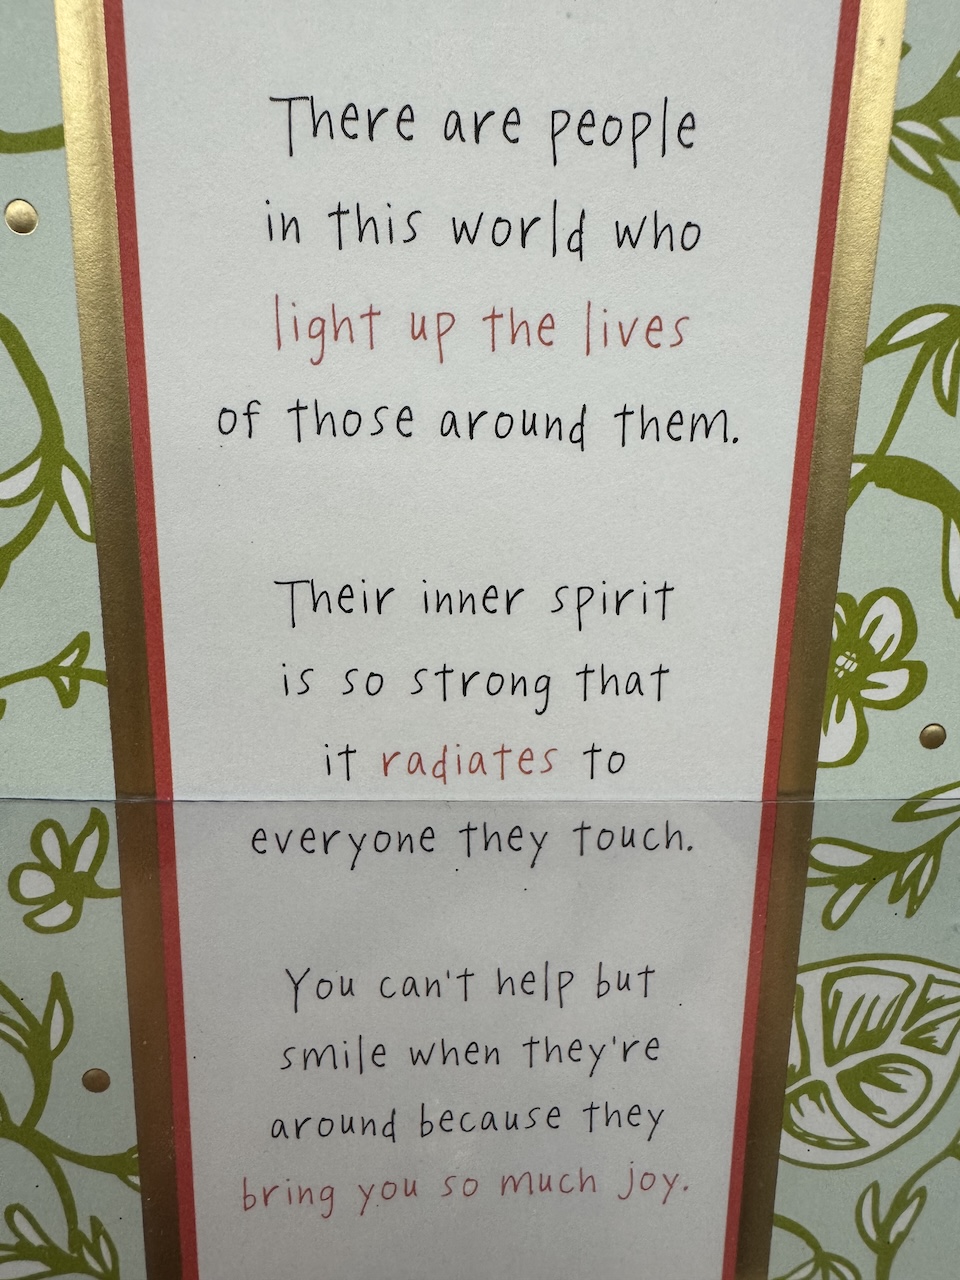 There are people
in this world who
light up the lives
of those around them.
Their inner spirit
is so strong that
it radiates to
everyone they touch.
You can't help but
smile when they're
around because they
bring you so much joy.